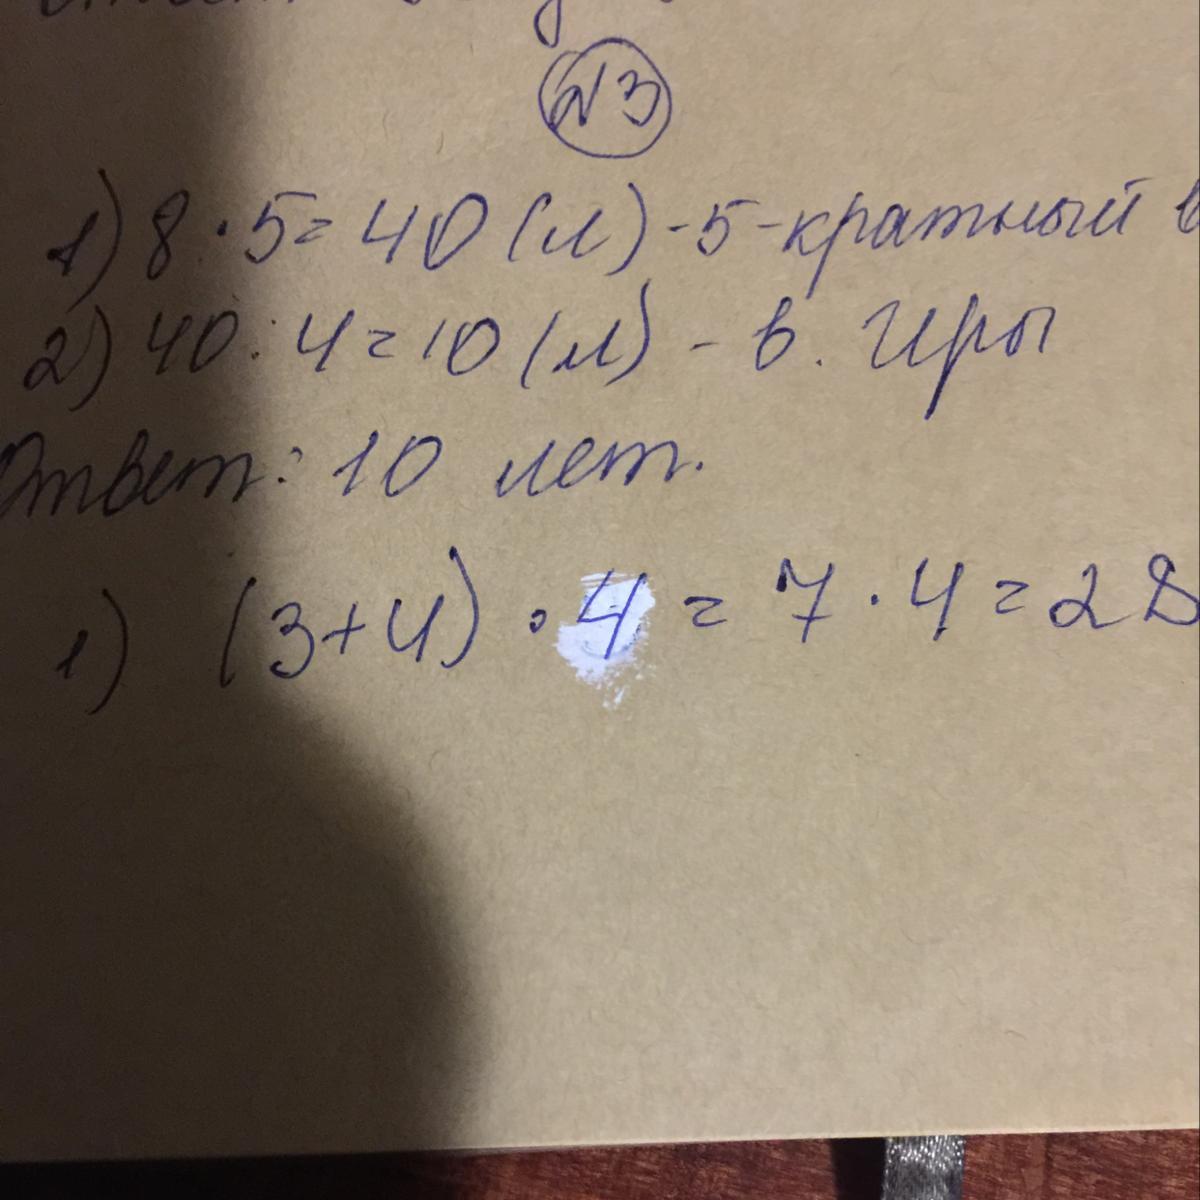 №3
1) 8 · 5 = 40 (л) - 5-кратный в
2) 40 : 4 = 10 (л) - в. Иры
Ответ: 10 лет.
1) (3+4) · 4 = 7 · 4 = 28